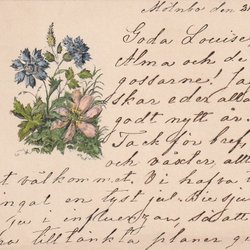 Mölnbo den 3
Goda Louise
Alma och de
gossarne! Ja
skar eder alle
godt nytt år.
Tack för bref,
och växler allt
t välkommet. Vi hafva t
ngat en tyst jul. Die sju
ju i influenzan, så all
ra tilltänkta planer g